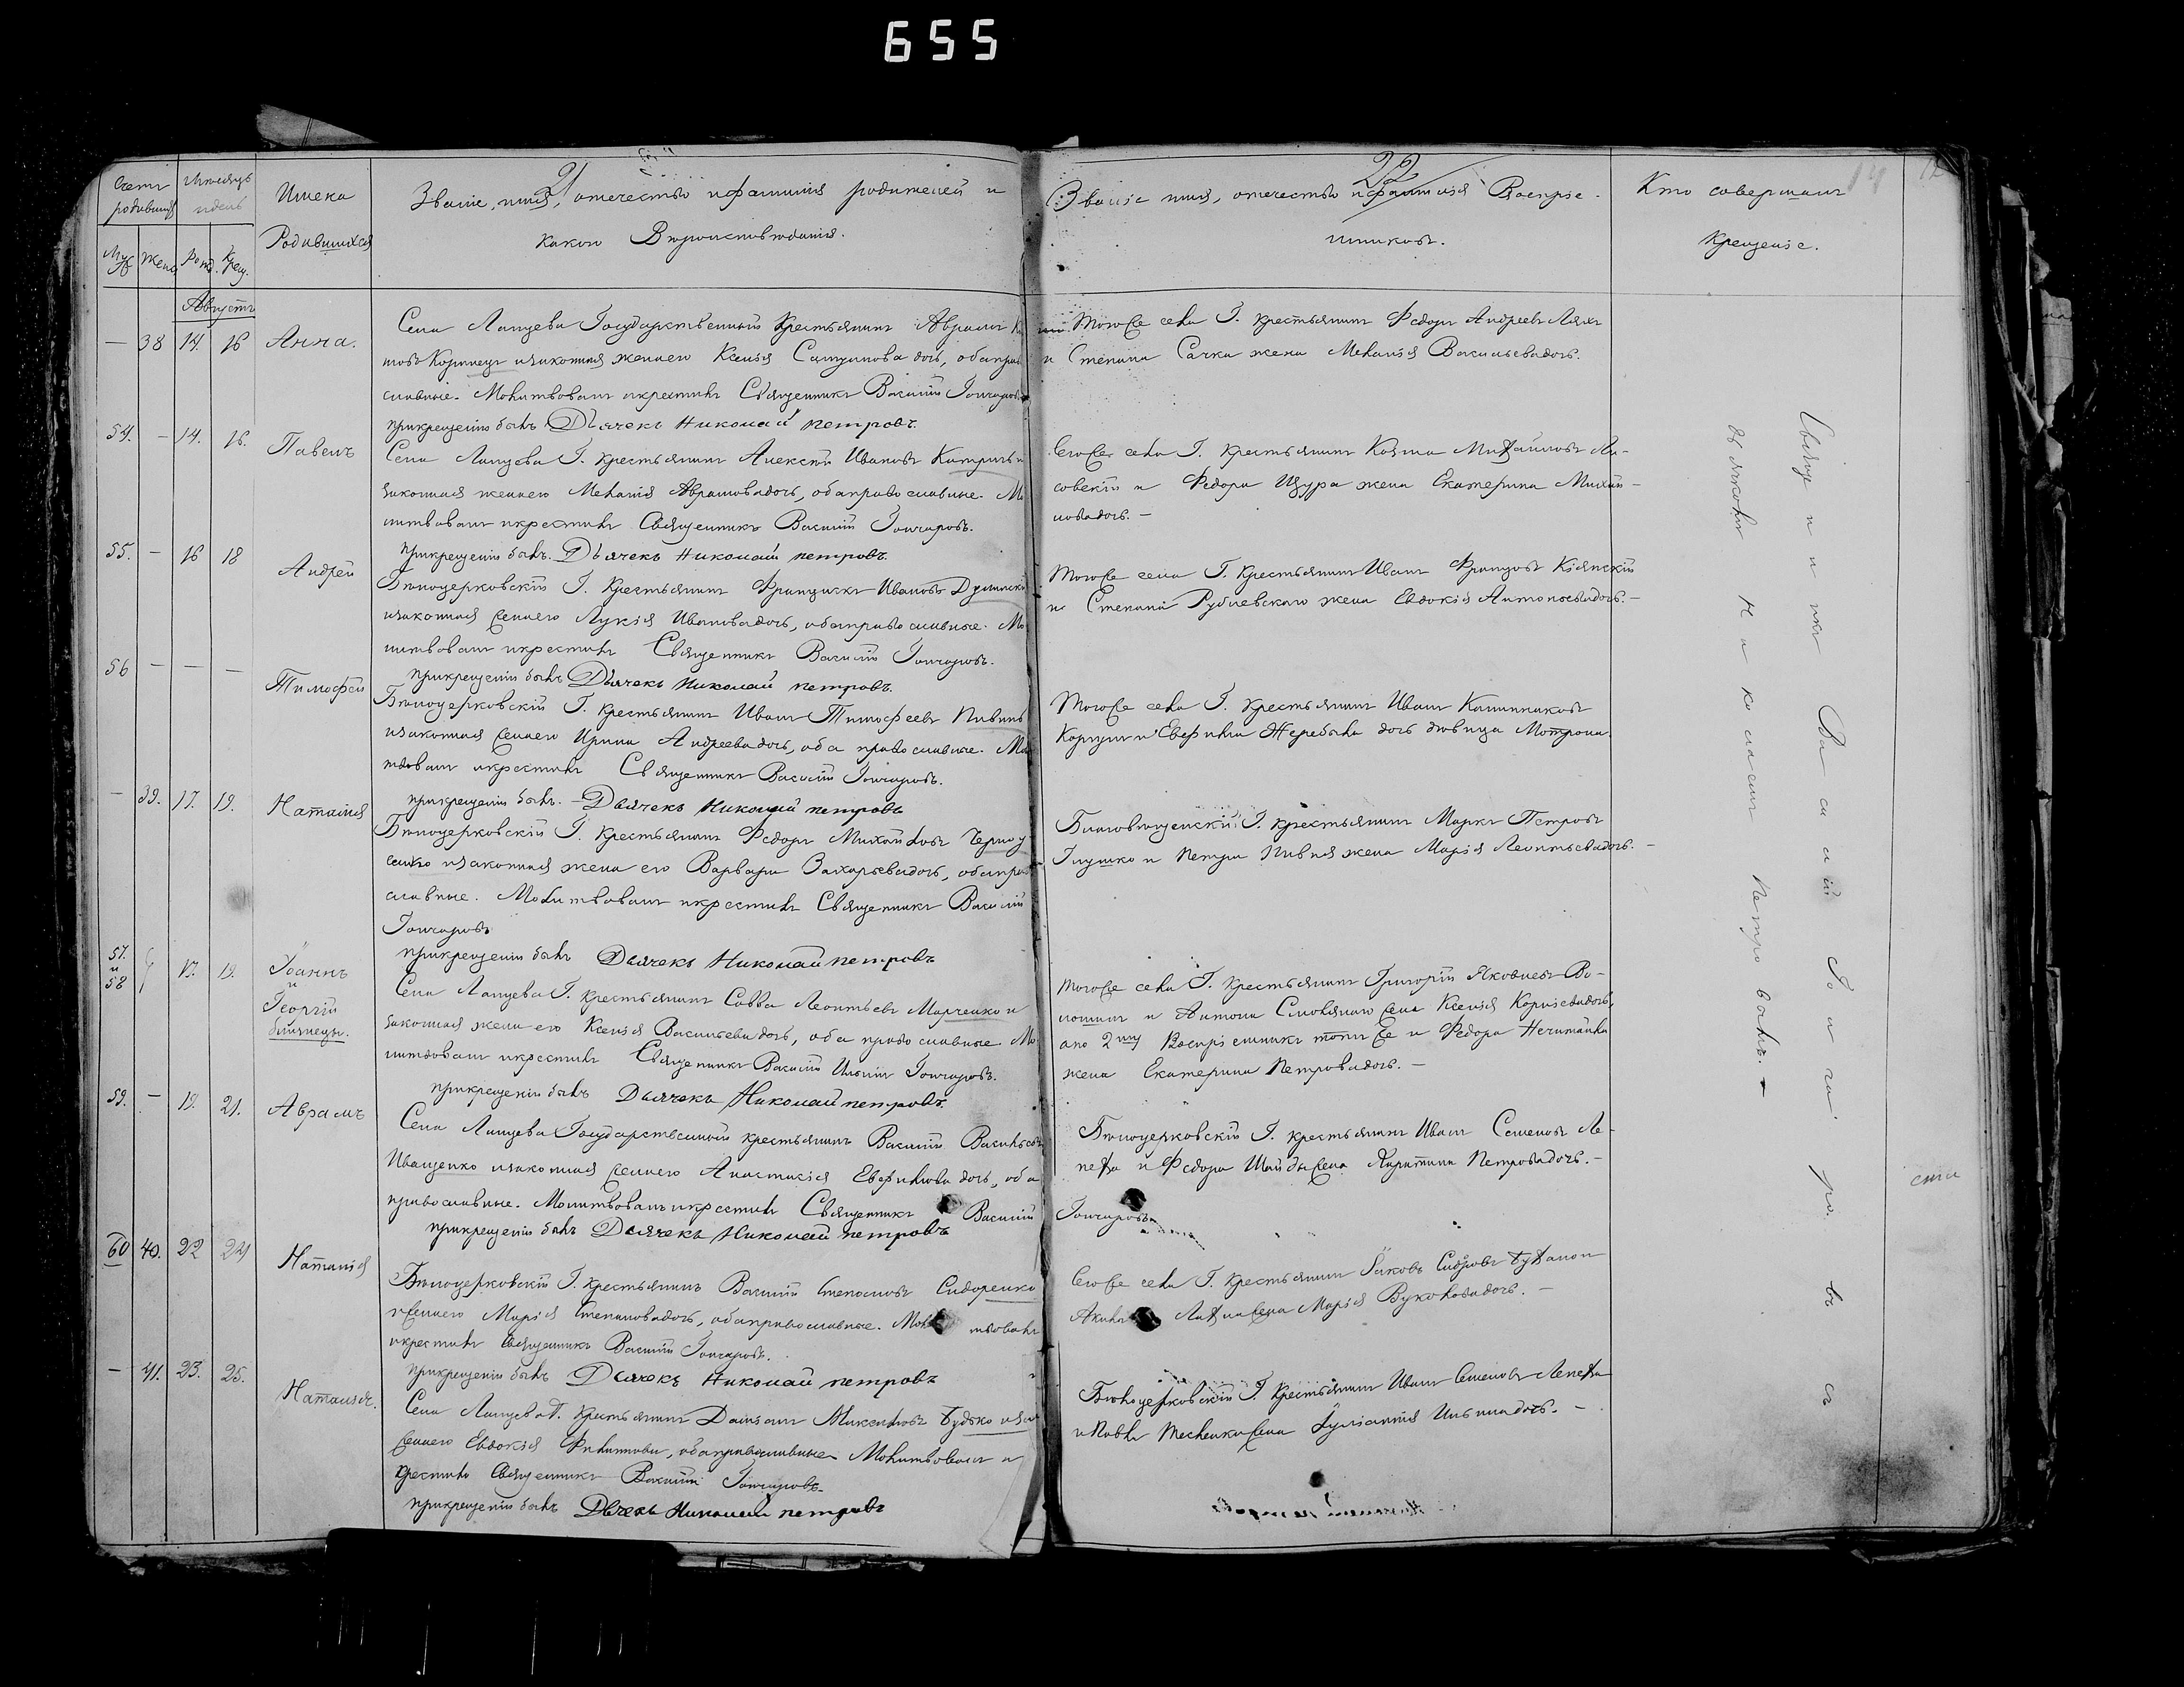 655
21
22
14
Счетъ родившихся
Мѣсяцъ и день
Имена Родившихся
Званіе, имя, отечество и фамилія родителей и
какого Вѣроисповѣданія.
Званіе имя, отечество и фамилія Воспріе-
мниковъ.
Кто совершалъ
крещеніе.
Муж Жен Рожд. Крещ.
Августъ
— 38 14. 16 Анна.
Села Лапцева Государственный Крестьянинъ Аврамъ
Коринецъ и законная жена его Ксенія дочь, обаправо
славные. Молитвовалъ и крестилъ Священникъ Василій Гончаровъ
при крещеніи былъ Дьячекъ Николай петровъ.
Тогоже села Г. крестьянинъ Федоръ Андреевъ Ляхъ
и Степана Сачка жена Меланія Васильева дочь.
54. — 14. 16. Павелъ
Села Лапцева Г. крестьянинъ Алексѣй Ивановъ
законная жена его Меланія Аврамова дочь, оба православные. Мо
литвовалъ и крестилъ Священникъ Василій Гончаровъ.
при крещеніи былъ. Дьячекъ Николай петровъ.
Сегоже села Г. крестьянинъ Козма Михайловъ Ли-
совскій и Федора Щура жена Екатерина Михай-
лова дочь. —
55. — 16 18 Андрей
Бѣлоцерковскій Г. Крестьянинъ Францискъ Ивановъ
и законная жена его Лукія Иванова дочь, оба православные. Мо
литвовалъ и крестилъ Священникъ Василій Гончаровъ.
при крещеніи былъ Дьячекъ Николай петровъ.
Тогоже села Г. Крестьянинъ Иванъ Францовъ Кіянскій
и Степана Рублевскаго жена Евдокія Антоньева дочь. —
56 — — — Тимофей
Бѣлоцерковскій Г. крестьянинъ Иванъ Тимофеевъ Пивень
и законная жена его Ирина Андреева дочь, оба православные. Мо
литвовалъ и крестилъ Священникъ Василій Гончаровъ.
при крещеніи былъ. — Дьячекъ Николай петровъ
Тогоже села Г. крестьянинъ Иванъ Калинниковъ
и Евфимія Жеребыла дочь дѣвица Мотрона.
— 39. 17. 19. Наталія
Бѣлоцерковскій Г. крестьянинъ Федоръ Михайловъ Черноу
сенко и законная жена его Варвара Захарьева дочь, обаправо
славные. Молитвовалъ и крестилъ Священникъ Василій
Гончаровъ
при крещеніи былъ Дьячекъ Николай петровъ
Благовѣщенскій Г. крестьянинъ Маркъ Петровъ
Глушко и Петра Пивня жена Марія Леонтьева дочь. —
57. и 58 17. 19. Іоаннъ
и
Георгій
близнецы.
Села Лапцева Г. крестьянинъ Савва Леонтьевъ Марченко и
законная жена его Ксенія Васильева дочь, оба православные Мо
литвовалъ и крестилъ Священникъ Василій Ильинъ Гончаровъ.
при крещеніи былъ Дьячекъ Николай петровъ.
Тогоже села Г. крестьянинъ Григорій Яковлевъ Во-
лошинъ и Антона жена Ксенія дочь,
а по 2му Воспріемникъ тотъ же и Федора Нечитайла
жена Екатерина Петрова дочь. —
59. — 19. 21. Аврамъ
Села Лапцева Государственный крестьянинъ Василій Васильевъ
Иващенко и законная жена его Анастасія Евфимова дочь, оба
православные. Молитвовалъ и крестилъ Священникъ Василій Гончаровъ.
при крещеніи былъ Дьячекъ Николай петровъ
Бѣлоцерковскій Г. крестьянинъ Иванъ Семеновъ Ле-
пеха и Федора жена Петрова дочь. —
60 40. 22 24 Наталія
Бѣлоцерковскій Г. крестьянинъ Василій Степановъ Сидоренко
и жена его Марія Степанова дочь, оба православные. Молитвовалъ
и крестилъ Священникъ Василій Гончаровъ.
при крещеніи былъ Дьячекъ Николай петровъ
Сегоже села Г. крестьянинъ Яковъ
жена Марія дочь. —
— 41. 23. 25. Наталія.
Села Лапцева Г. крестьянинъ Даміанъ Максимовъ Будько и
жена его Евдокія Филиппова, оба православные Молитвовалъ и
крестилъ Священникъ Василій Гончаровъ.
при крещеніи былъ Дьячекъ Николай петровъ
Бѣлоцерковскій Г. крестьянинъ Иванъ Семеновъ Лепеха
и Павла жена Іуліанія Ильина дочь. —
Священникъ Василій Гончаровъ съ
дьячкомъ Николаемъ Петровымъ. —